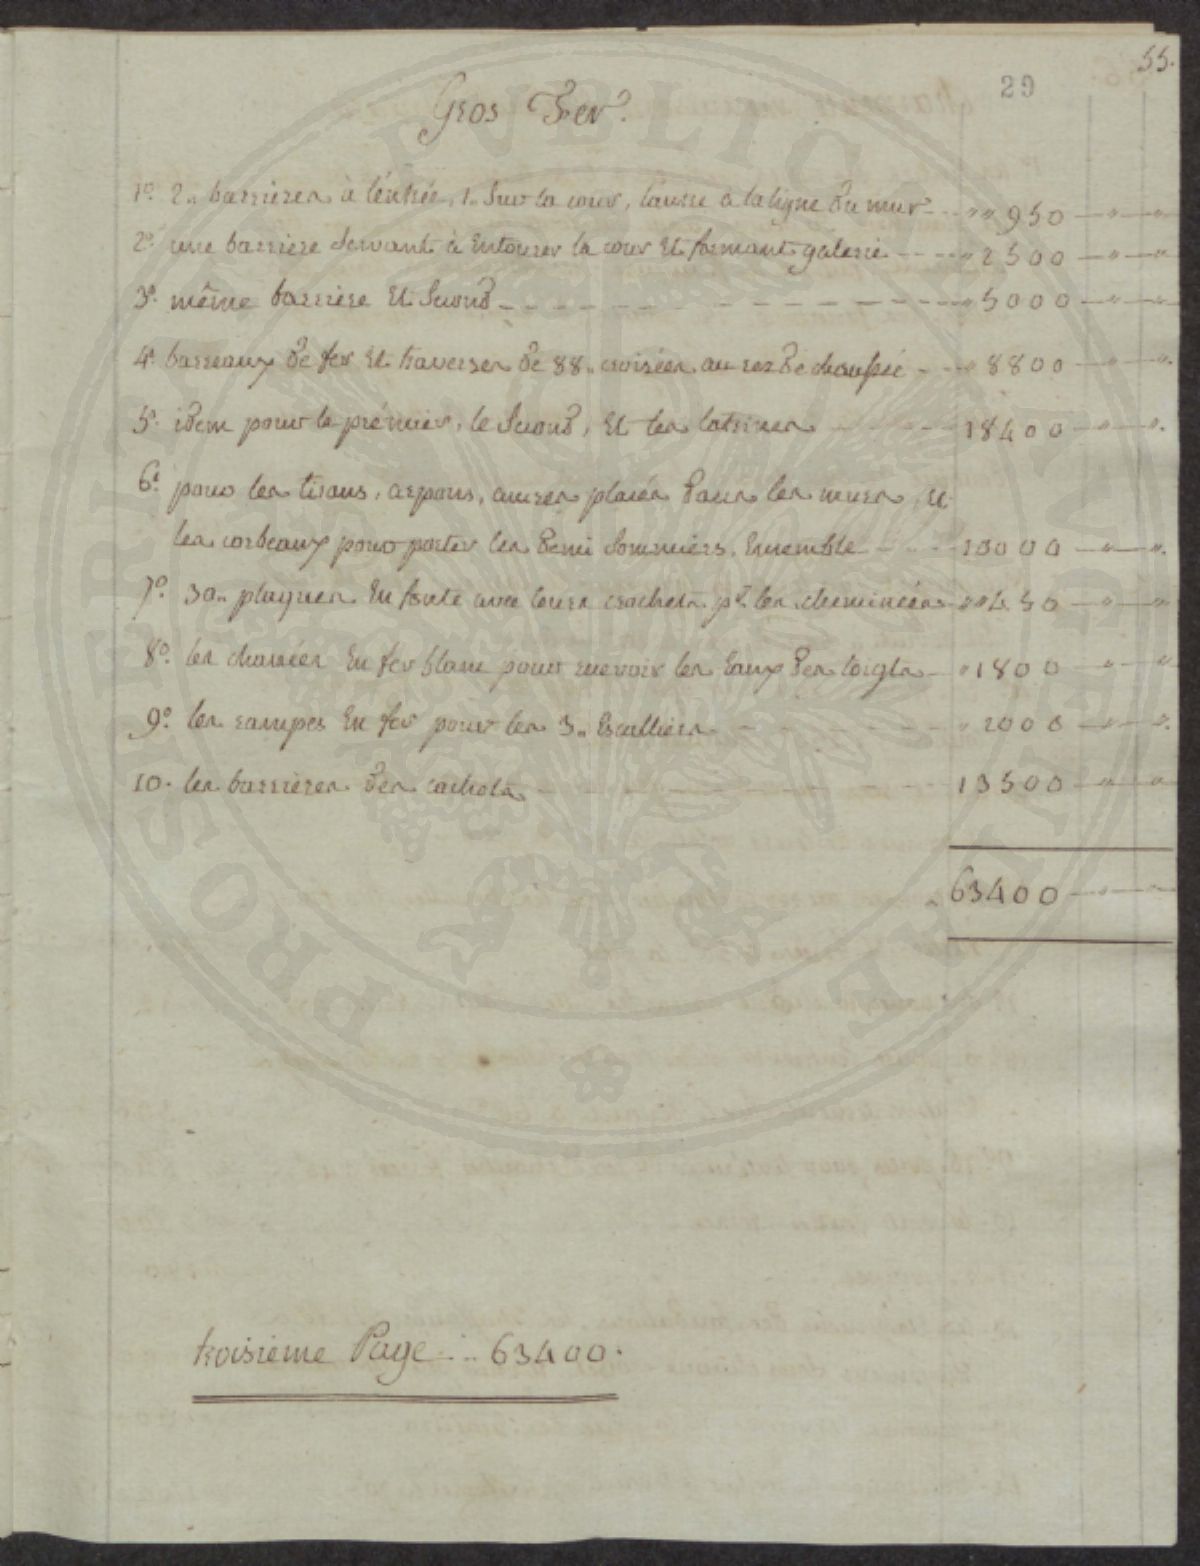 55.
29
Gros Fer.
1º. 2,, barrieres à l'entrée, 1. sur la cour, l'autre à la ligne du mur - - ,, ,, 950 - ,, - ,,
2º. une barriere servant à entourer la cour et formant galerie - - - - ,, 2500 - ,, - ,,
3º. même barriere et second - - - - - - - - - - ,, 5000 - ,, - ,,
4º. barreaux de fer et traverses de 88,, croisées au rez de chaussée - - ,, 8800 - ,, - ,,
5º. idem pour le prémier, le second, et les latrines - - - - 18400 - ,, - ,,
6º. pour les tirans, arpons, ancres placés dans les murs, et
les corbeaux pour porter les demi sommiers, ensemble - - - - 10000 - ,, - ,,
7º. 30,, plaques en fonte avec leurs crochets pr. les cheminées - ,, ,, 450 - ,, - ,,
8º. les chanées en fer blanc pour recevoir les eaux des toigts - ,, 1800 - ,, - ,,
9º. les rampes en fer pour les 3,, escalliers - - - - - - ,, 2000 - ,, - ,,
10. les barrieres des cachots - - - - - - - - 13500 - ,, - ,,
63400 - ,, - ,,
troisieme Page - ,, 63400.
PUBLIC